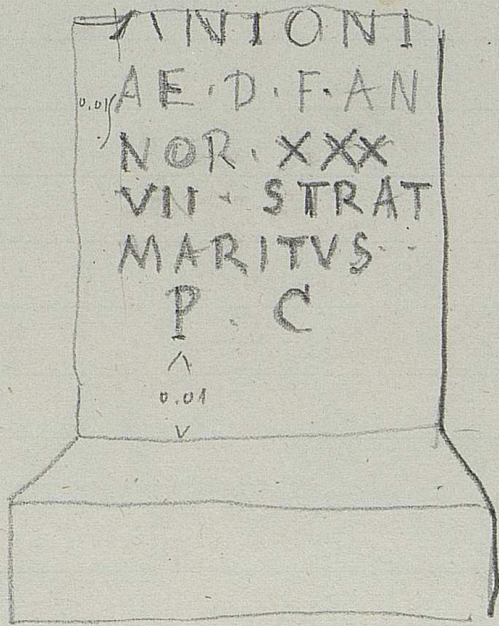 ANTONI
AE · D · F · AN
NOR · XXX
VII · STRAT
MARITVS
P · C
0.01